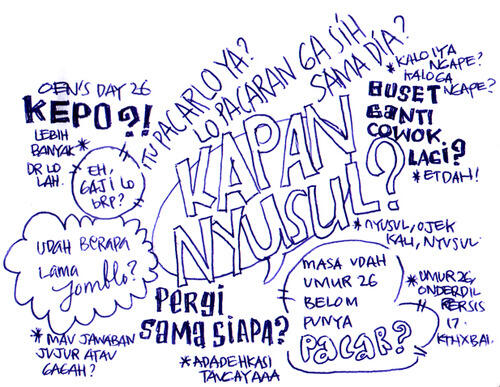 OEN'S DAY 26
KEPO?!
LEBIH
BANYAK *
DR LO
LAH.
EH,
GAJI LO
BRP?
ITU PACAR LO YA?
LO PACARAN GA SIH
SAMA DIA?
* KALO IYA
NGAPE?
KALO GA
NGAPE?
BUSET
GANTI
COWOK
LAGI?
* ETDAH!
KAPAN
NYUSUL?
* NYUSUL, OJEK
KALI, NYUSUL.
UDAH BERAPA
LAMA
Jomblo?
* MAU JAWABAN
JUJUR ATAU
GAGAH?
PERGI
SAMA SIAPA?
* ADADEHKASI
TAUGAYAAA
MASA UDAH
UMUR 26
BELOM
PUNYA
PACAR?
* UMUR 26,
ONDERDIL
PERSIS
17.
KTHXBAI.